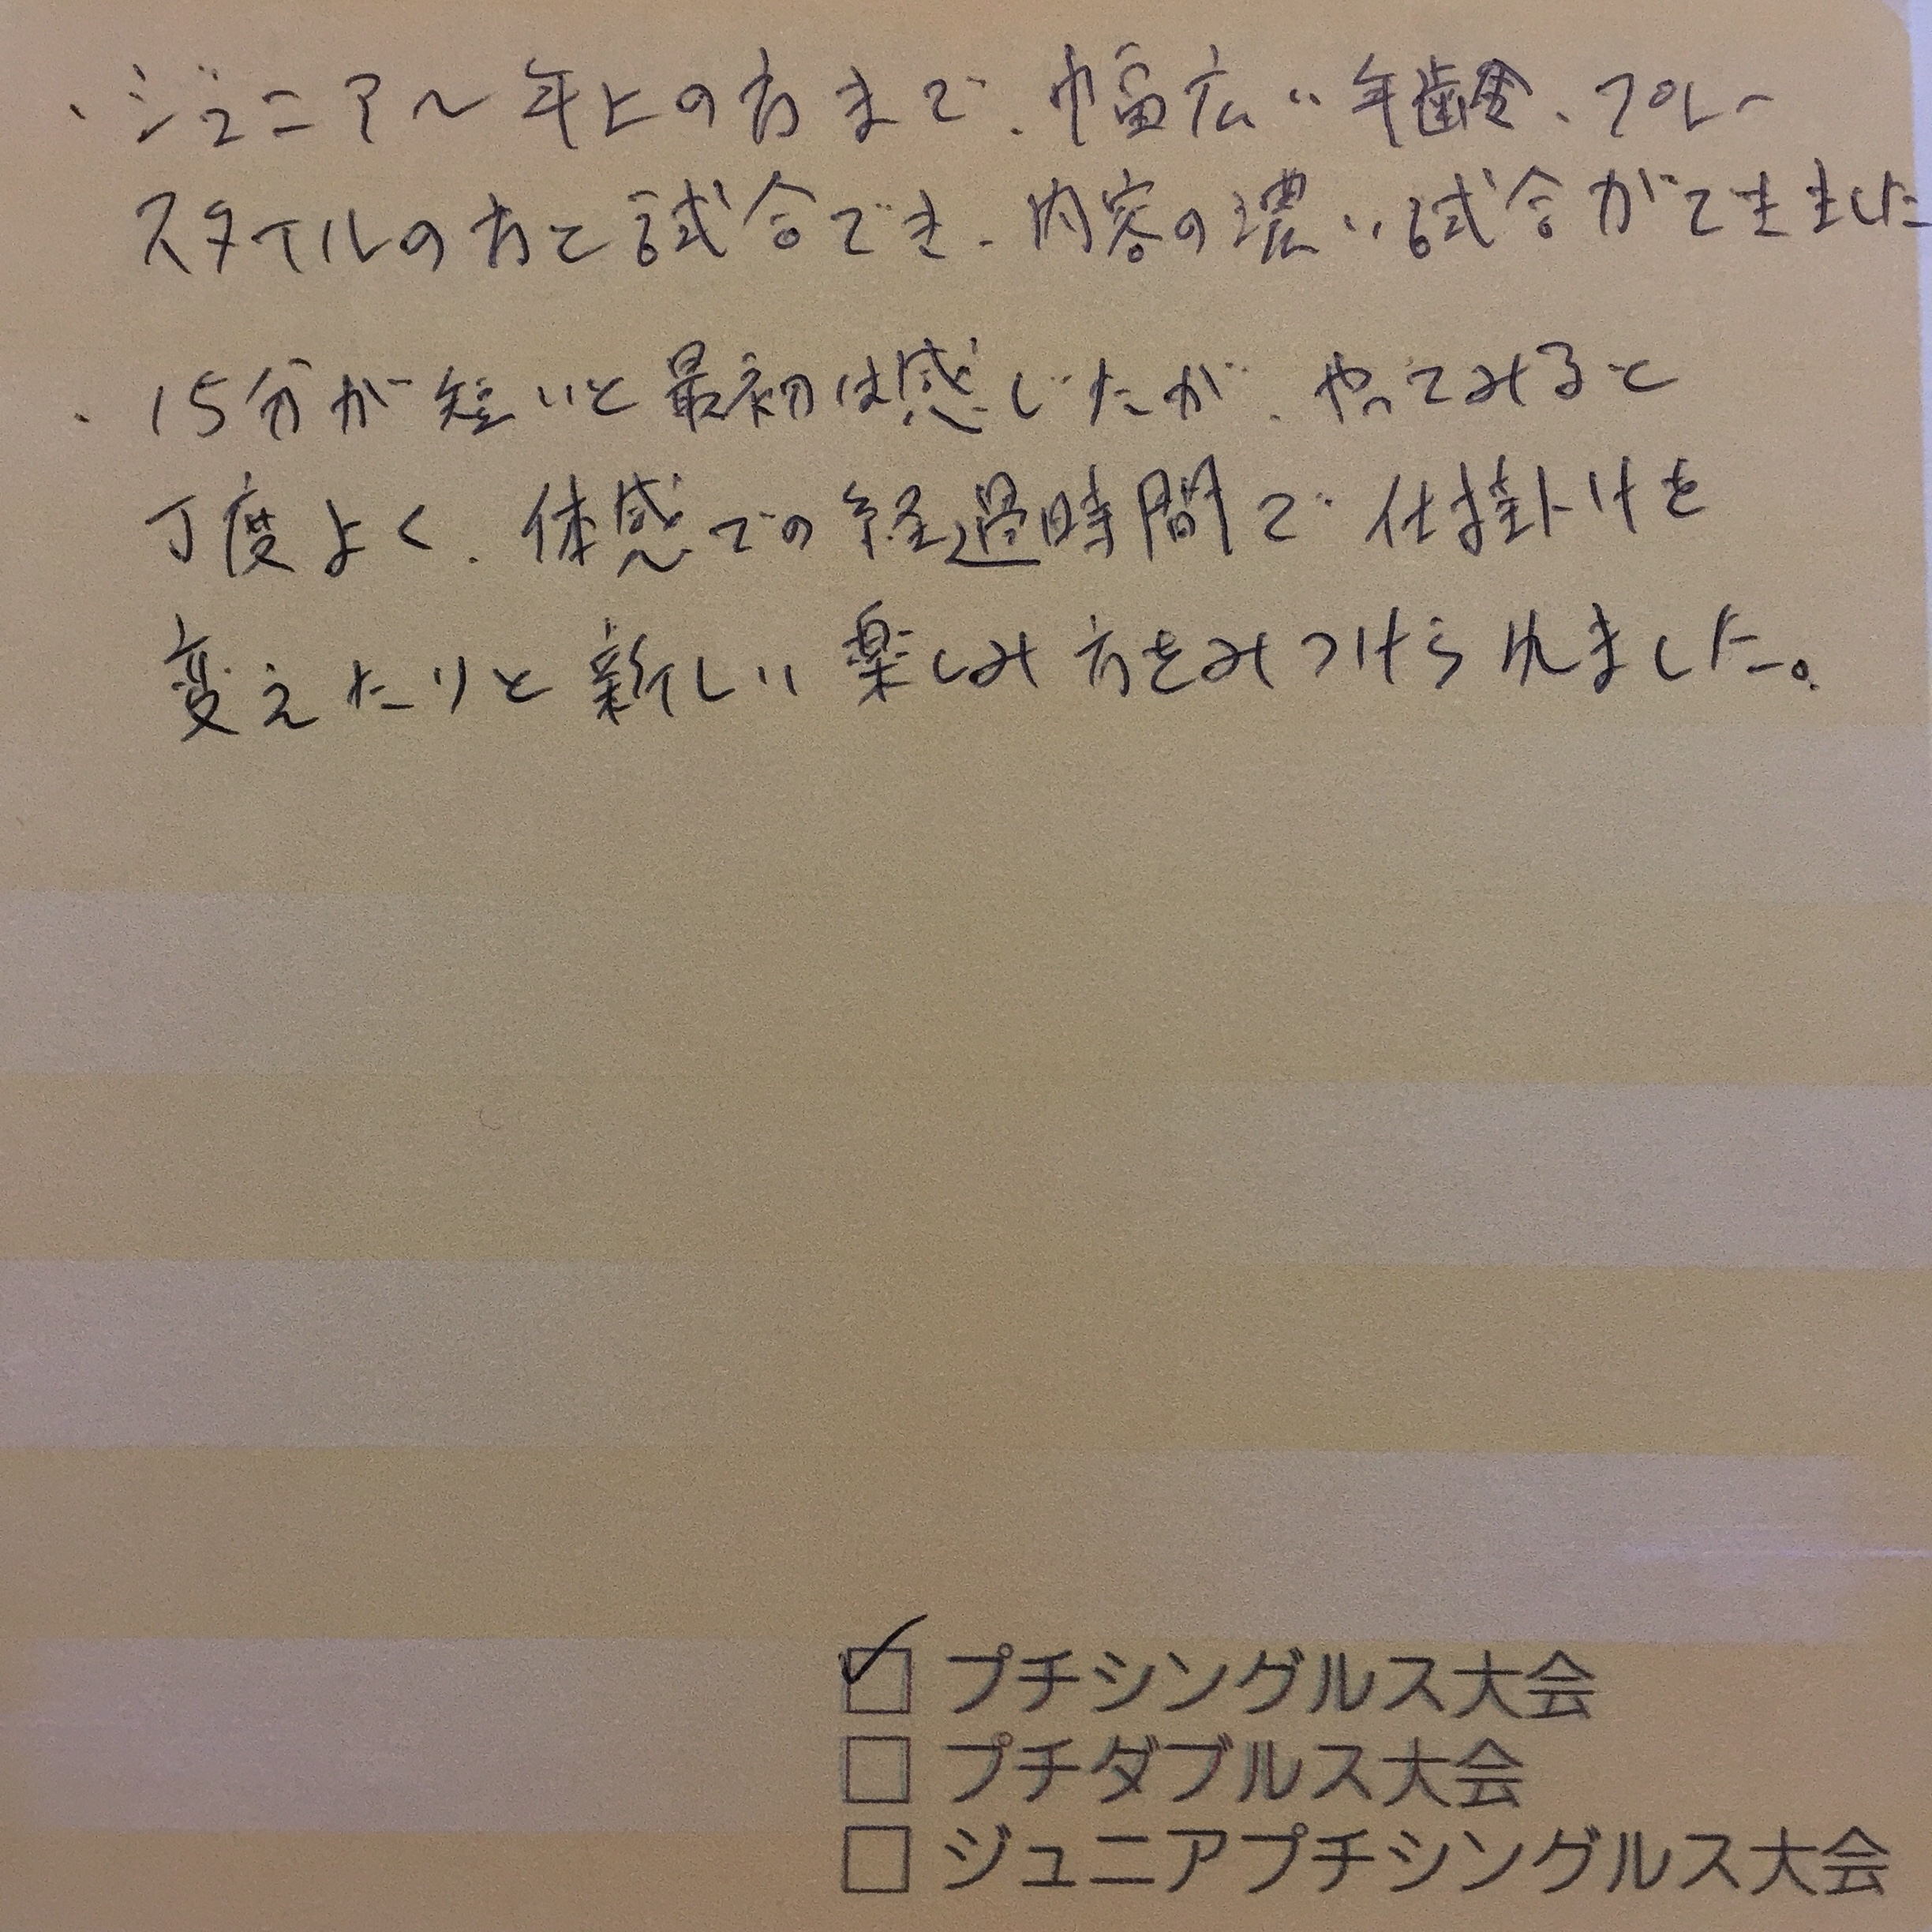 ・ジュニア～年上の方まで、幅広い年齢、プレー
スタイルの方と試合でき、内容の濃い試合ができました
・15分が短いと最初は感じたが、やってみると
丁度よく、体感での経過時間で仕掛けを
変えたりと新しい楽しみ方をみつけられました。
プチシングルス大会
プチダブルス大会
ジュニアプチシングルス大会